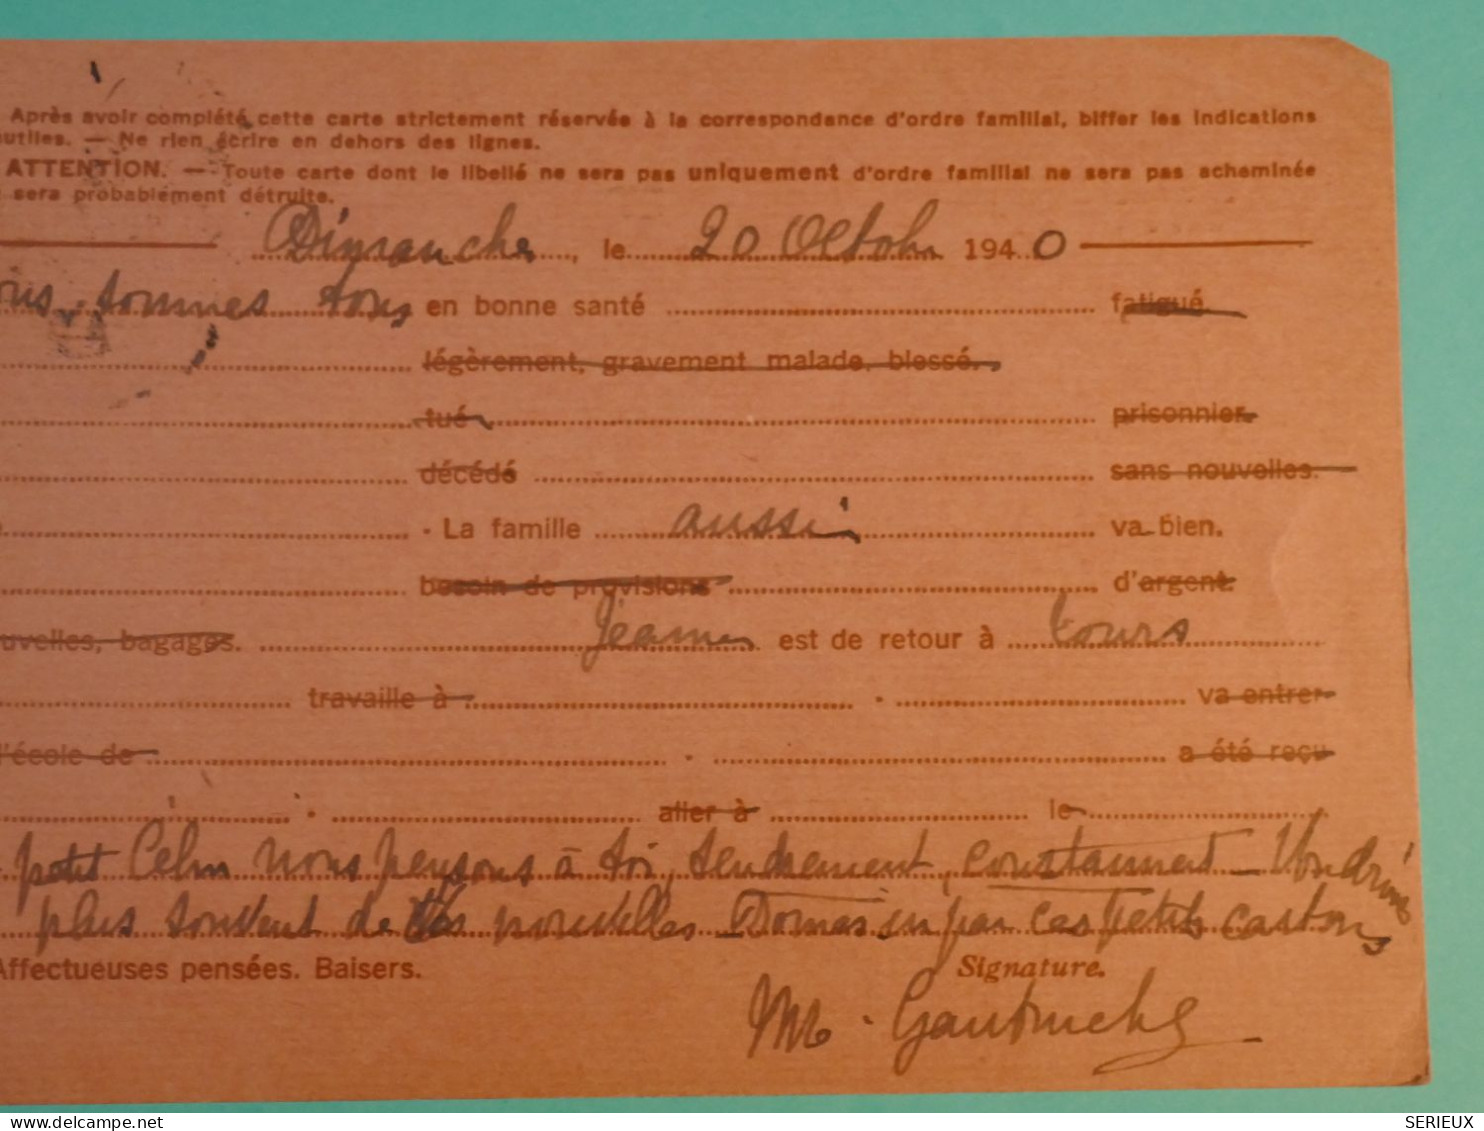 Après avoir complété cette carte strictement réservée à la correspondance d'ordre familial, biffer les indications
utiles. — Ne rien écrire en dehors des lignes.
ATTENTION. — Toute carte dont le libellé ne sera pas uniquement d'ordre familial ne sera pas acheminée
sera probablement détruite.
Dimanche, le 20 Octobre 1940
ous sommes tous en bonne santé fatigué.
légèrement, gravement malade, blessé.
tué prisonnier.
décédé sans nouvelles.
- La famille aussi va bien.
besoin de provisions d'argent.
uvelles, bagages. est de retour à Tours
travaille à va entrer
l'école de a été reçu
aller à le
petit nous pensons à toi, tendrement, constamment —
plus souvent de tes nouvelles par ces petits cartons
Affectueuses pensées. Baisers. Signature.
M.
SERIEUX